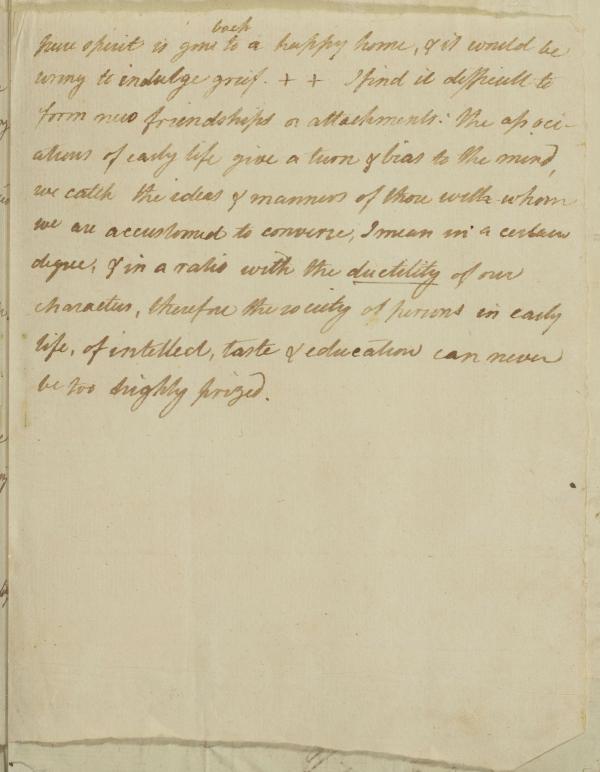 back
pure spirit is gone to a happy home, & it would be
wrong to indulge grief. + + I find it difficult to
form new friendships or attachments: the associ-
ations of early life give a turn & bias to the mind,
we catch the ideas & manners of those with whom
we are accustomed to converse, I mean in a certain
degree, & in a ratio with the ductility of our
characters, therefore the society of persons in early
life, of intellect, taste & education can never
be too highly prized.